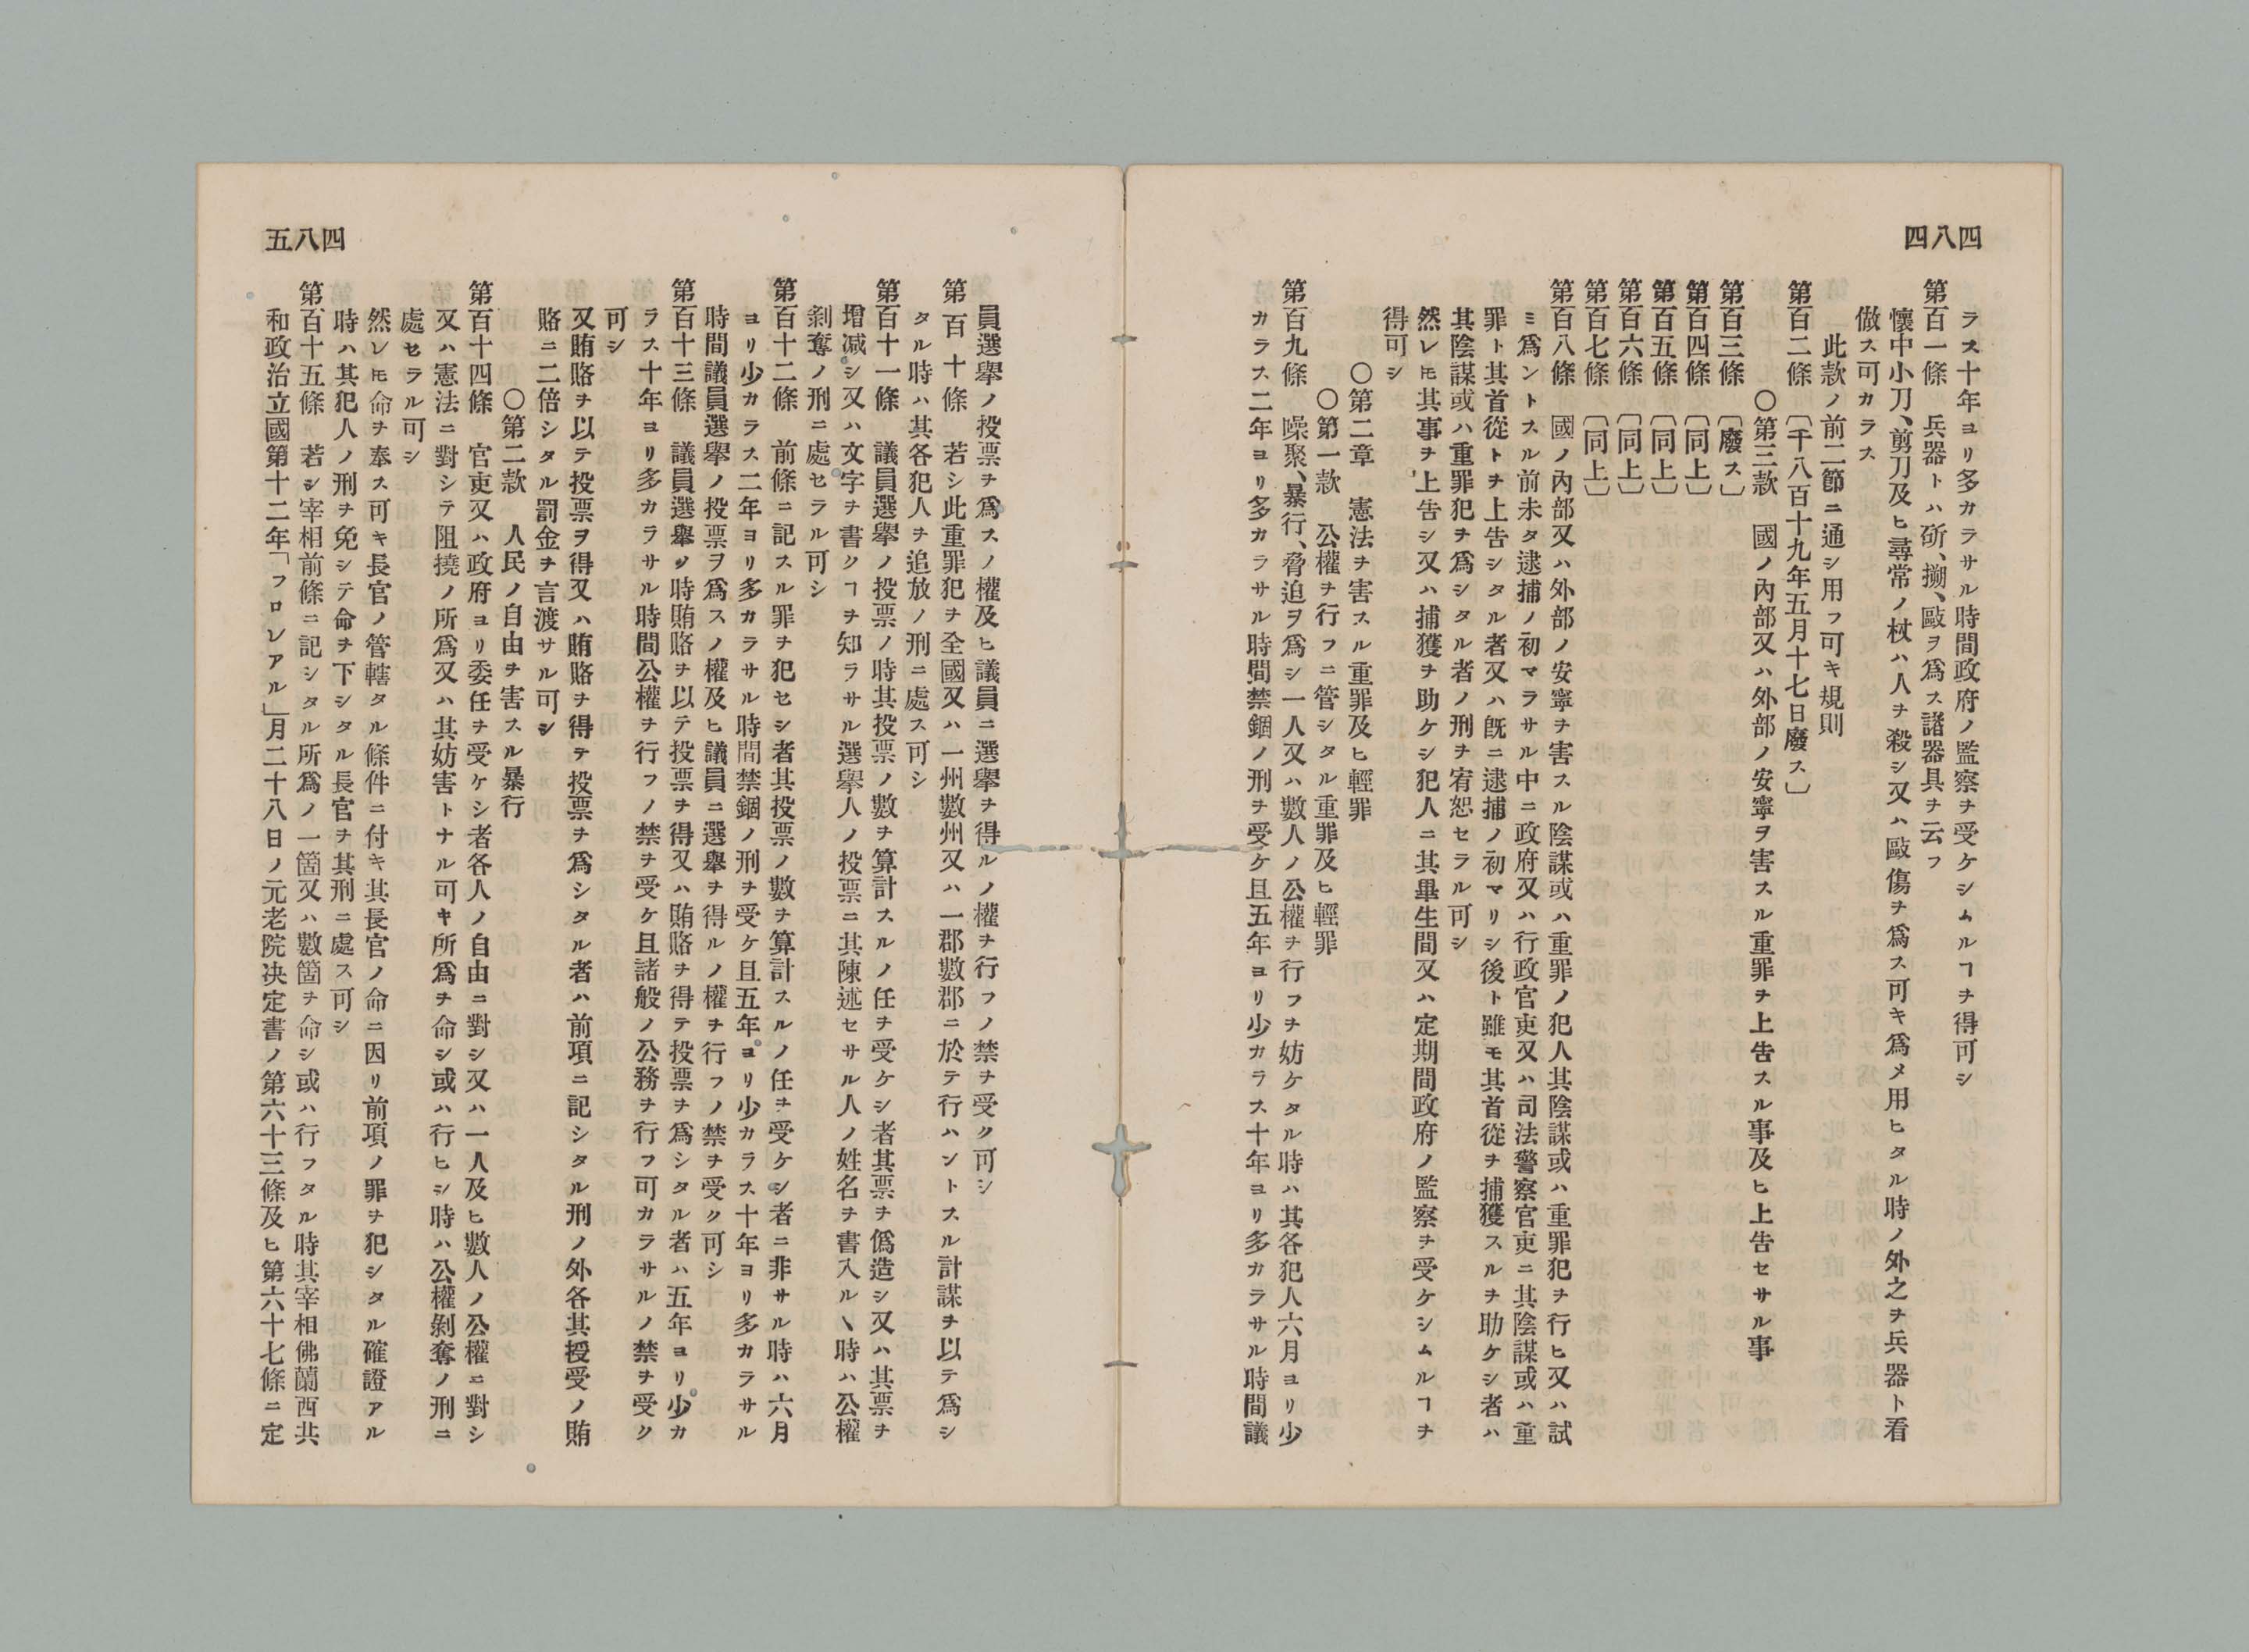 四八四
ラス十年ヨリ多カラサル時間政府ノ監察ヲ受ケシムルヿヲ得可シ
第百一條　兵器トハ斫、搠、毆ヲ爲ス諸器具ヲ云フ
懷中小刀、剪刀及ヒ尋常ノ杖ハ人ヲ殺シ又ハ毆傷ヲ爲ス可キ爲メ用ヒタル時ノ外之ヲ兵器ト看
倣ス可カラス
此款ノ前二節ニ通シ用フ可キ規則
第百二條　〔千八百十九年五月十七日廢ス〕
〇第三款　國ノ內部又ハ外部ノ安寧ヲ害スル重罪ヲ上告スル事及ヒ上告セサル事
第百三條　〔廢ス〕
第百四條　〔同上〕
第百五條　〔同上〕
第百六條　〔同上〕
第百七條　〔同上〕
第百八條　國ノ內部又ハ外部ノ安寧ヲ害スル陰謀或ハ重罪ノ犯人其陰謀或ハ重罪犯ヲ行ヒ又ハ試
ミ爲ントスル前未タ逮捕ノ初マラサル中ニ政府又ハ行政官吏又ハ司法警察官吏ニ其陰謀或ハ重
罪ト其首從トヲ上告シタル者又ハ旣ニ逮捕ノ初マリシ後ト雖モ其首從ヲ捕獲スルヲ助ケシ者ハ
其陰謀或ハ重罪犯ヲ爲シタル者ノ刑ヲ宥恕セラル可シ
然レ𪜈其事ヲ上告シ又ハ捕獲ヲ助ケシ犯人ニ其畢生間又ハ定期間政府ノ監察ヲ受ケシムルヿヲ
得可シ
〇第二章　憲法ヲ害スル重罪及ヒ輕罪
〇第一款　公權ヲ行フニ管シタル重罪及ヒ輕罪
第百九條　噪聚、暴行、脅迫ヲ爲シ一人又ハ數人ノ公權ヲ行フヲ妨ケタル時ハ其各犯人六月ヨリ少
カラス二年ヨリ多カラサル時間禁錮ノ刑ヲ受ケ且五年ヨリ少カラス十年ヨリ多カラサル時間議
五八四
員選擧ノ投票ヲ爲スノ權及ヒ議員ニ選擧ヲ得ルノ權ヲ行フノ禁ヲ受ク可シ
第百十條　若シ此重罪犯ヲ全國又ハ一州數州又ハ一郡數郡ニ於テ行ハントスル計謀ヲ以テ爲シ
タル時ハ其各犯人ヲ追放ノ刑ニ處ス可シ
第百十一條　議員選擧ノ投票ノ時其投票ノ數ヲ算計スルノ任ヲ受ケシ者其票ヲ僞造シ又ハ其票ヲ
增減シ又ハ文字ヲ書クヿヲ知ラサル選擧人ノ投票ニ其陳述セサル人ノ姓名ヲ書入ルヽ時ハ公權
剝奪ノ刑ニ處セラル可シ
第百十二條　前條ニ記スル罪ヲ犯セシ者其投票ノ數ヲ算計スルノ任ヲ受ケシ者ニ非サル時ハ六月
ヨリ少カラス二年ヨリ多カラサル時間禁錮ノ刑ヲ受ケ且五年ヨリ少カラス十年ヨリ多カラサル
時間議員選擧ノ投票ヲ爲スノ權及ヒ議員ニ選擧ヲ得ルノ權ヲ行フノ禁ヲ受ク可シ
第百十三條　議員選擧ノ時賄賂ヲ以テ投票ヲ得又ハ賄賂ヲ得テ投票ヲ爲シタル者ハ五年ヨリ少カ
ラス十年ヨリ多カラサル時間公權ヲ行フノ禁ヲ受ケ且諸般ノ公務ヲ行フ可カラサルノ禁ヲ受ク
可シ
又賄賂ヲ以テ投票ヲ得又ハ賄賂ヲ得テ投票ヲ爲シタル者ハ前項ニ記シタル刑ノ外各其授受ノ賄
賂ニ二倍シタル罰金ヲ言渡サル可シ
〇第二款　人民ノ自由ヲ害スル暴行
第百十四條　官吏又ハ政府ヨリ委任ヲ受ケシ者各人ノ自由ニ對シ又ハ一人及ヒ數人ノ公權ニ對シ
又ハ憲法ニ對シテ阻撓ノ所爲又ハ其妨害トナル可キ所爲ヲ命シ或ハ行ヒシ時ハ公權剝奪ノ刑ニ
處セラル可シ
然レ𪜈命ヲ奉ス可キ長官ノ管轄タル條件ニ付キ其長官ノ命ニ因リ前項ノ罪ヲ犯シタル確證アル
時ハ其犯人ノ刑ヲ免シテ命ヲ下シタル長官ヲ其刑ニ處ス可シ
第百十五條　若シ宰相前條ニ記シタル所爲ノ一箇又ハ數箇ヲ命シ或ハ行フタル時其宰相佛蘭西共
和政治立國第十二年「フロレアル」月二十八日ノ元老院決定書ノ第六十三條及ヒ第六十七條ニ定